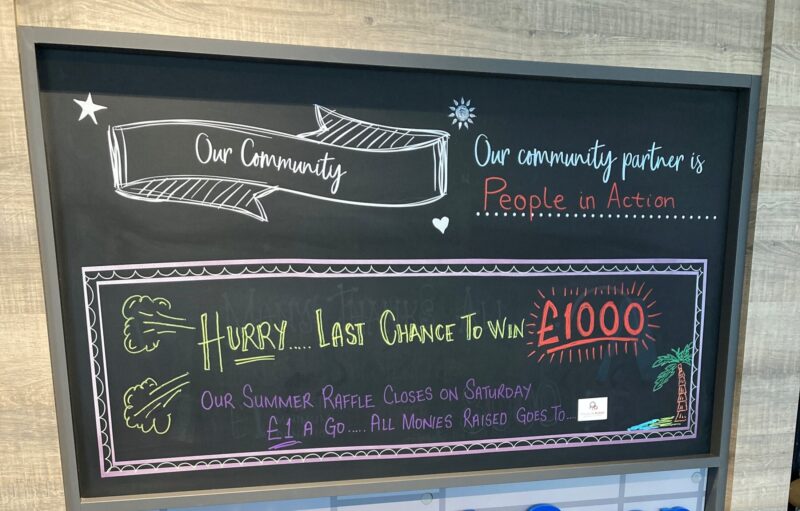 Our Community
Our community partner is
People in Action
HURRY..... LAST CHANCE TO WIN £1000
OUR SUMMER RAFFLE CLOSES ON SATURDAY
£1 A GO..... ALL MONIES RAISED GOES TO....